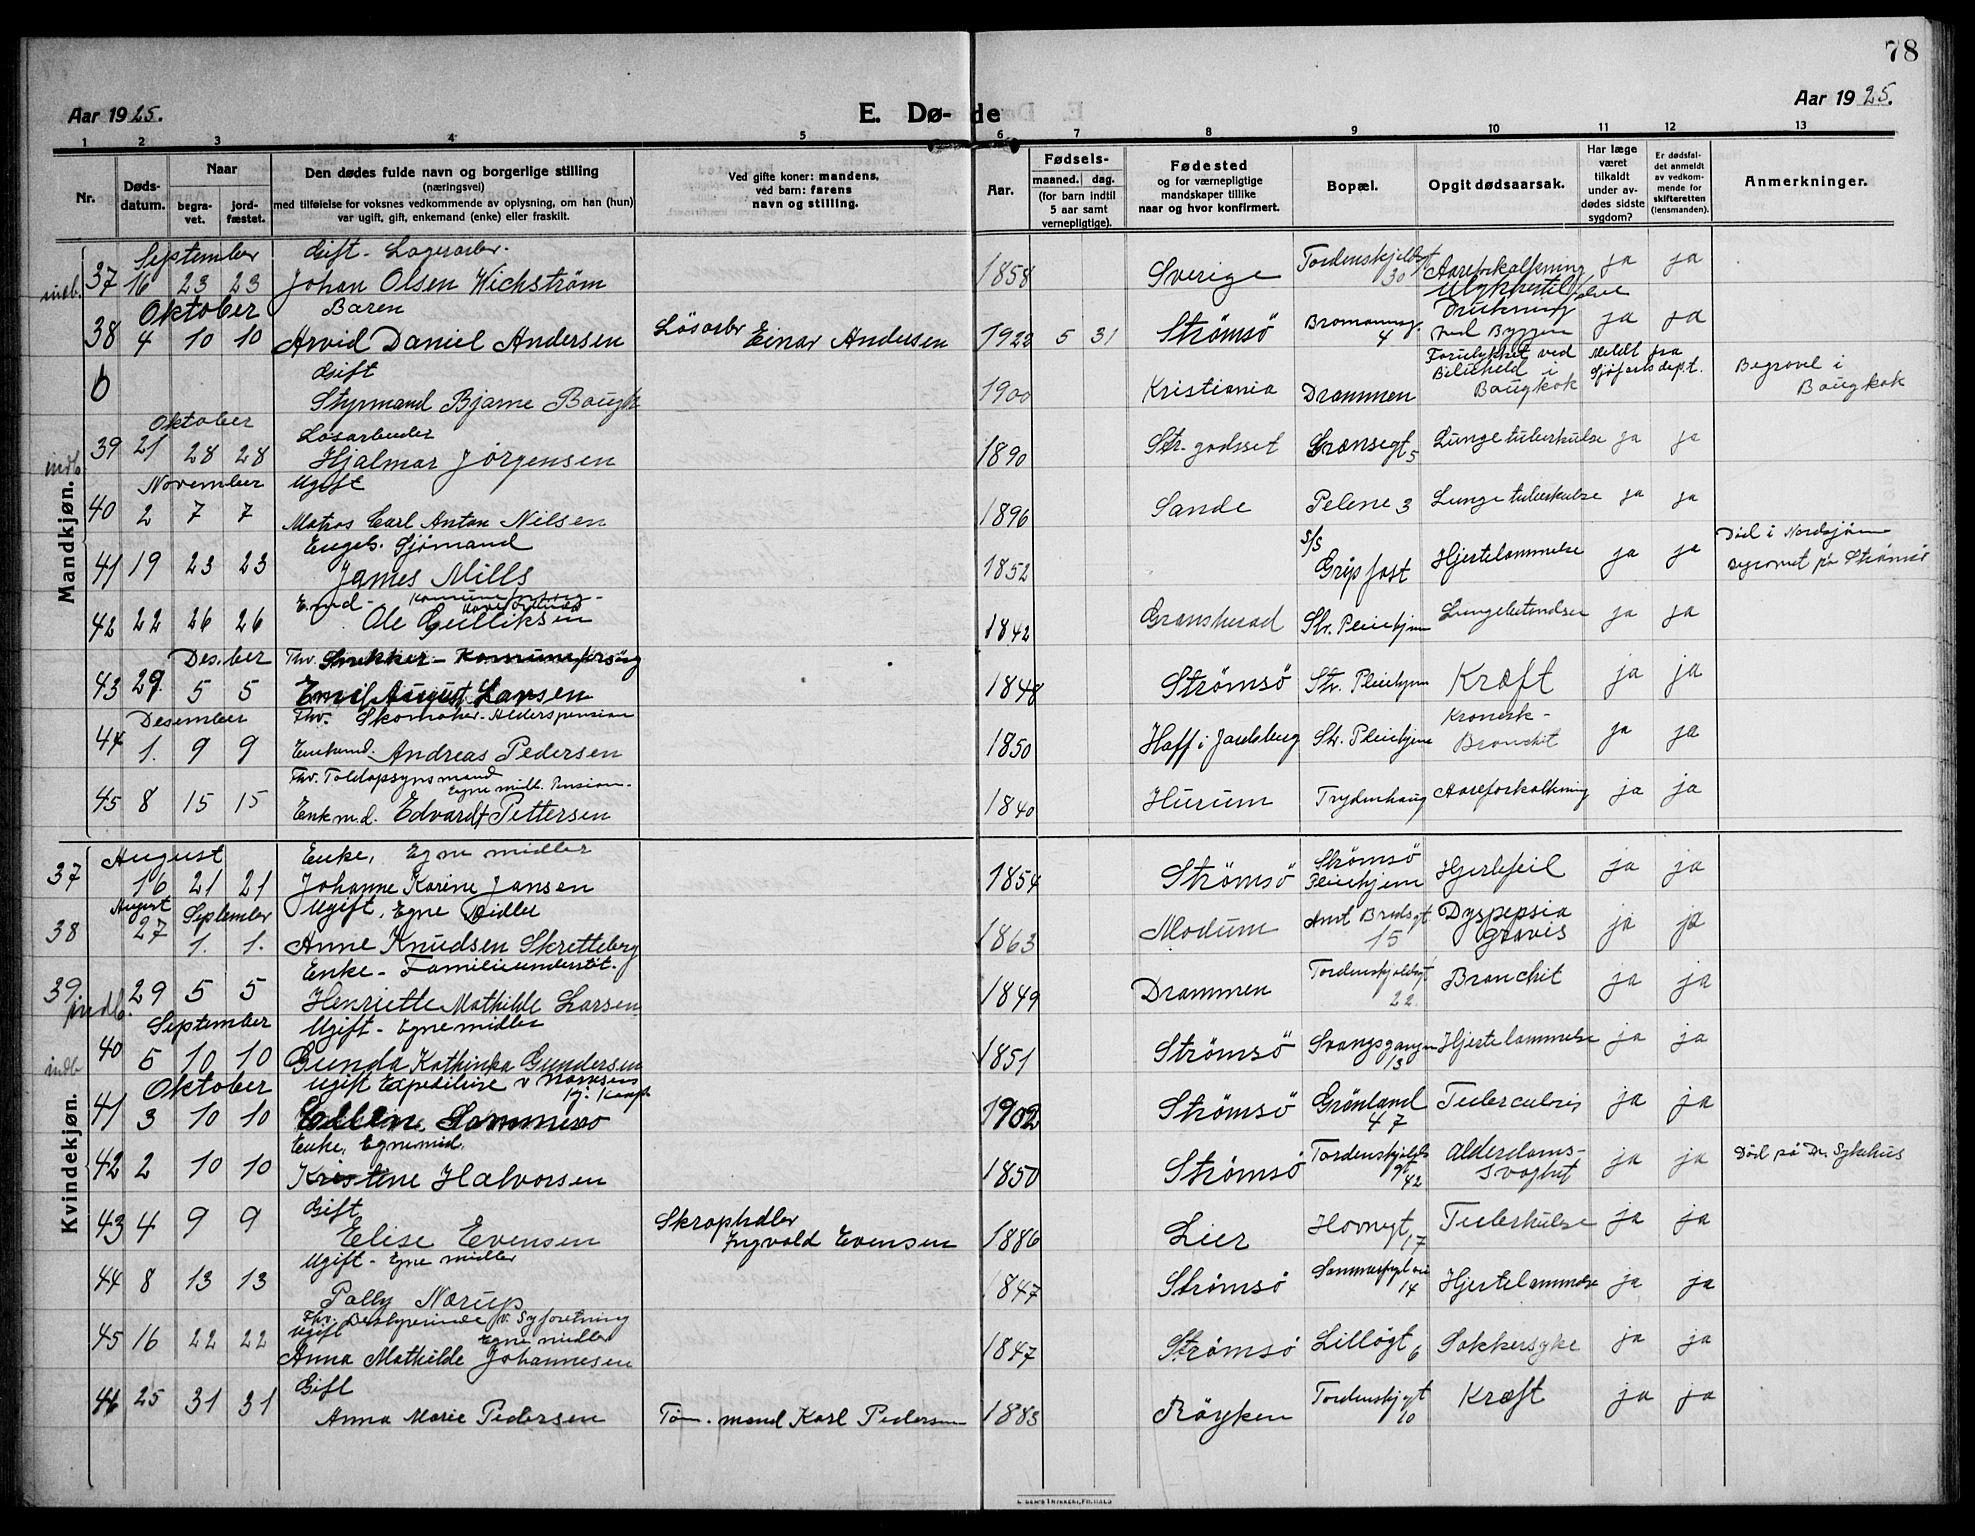 78
Aar 1925. E. Dø- de Aar 1925.
1 2 3 4 5 6 7 8 9 10 11 12 13
Nr. Døds-datum. Naar begra-vet. jord-fæstet. Den dødes fulde navn og borgerlige stilling (næringsvei) med tilføielse for voksnes vedkommende av oplysning, om han (hun) var ugift, gift, enkemand (enke) eller fraskilt. Ved gifte koner: mandens, ved barn: farens navn og stilling. Aar. Fødsels-maaned. dag. (for barn indtil 5 aar samt vernepligtige). Fødested og for værnepligtige mandskaper tillike naar og hvor konfirmert. Bopæl. Opgit dødsaarsak. Har læge været tilkaldt under av-dødes sidste sygdom? Er dødsfal-det anmeldt av vedkom-mende for skifteretten (lensmanden). Anmerkninger.
Mandkjøn.
September Gift - Lagerarbr. Tordenskjoldsgt
indb. 37 16 23 23 Johan Olsen Wichstrøm 1858 Sverige 30 Aareforkalkning ja ja
Oktober Baren Ulykkestilfælde
38 4 10 10 Arvid Daniel Andersen Løsarbr Einar Andersen 1922 5 31 Strømsö Bromannsg. 4 Drukning ved Byggen ja ja
Gift Forulykket ved Meldt fra Begravel i
6 Styrmand Bjarne Bough 1900 Kristiania Drammen Biluheld i Bougkok Sjøfartsdept. Bougkok
Oktober Løsarbeider
indb 39 21 28 28 Hjalmar Jørgensen 1890 Str. godsset Grænsegt 5 Lungetuberkulse ja ja
November Ugift
40 2 7 7 Matros Carl Anton Nilsen 1896 Sande Pelene 3 Lungetuberkulse ja ja
Engels. Sjømand S/S Død i Nordsjøen
41 19 23 23 James Mills 1852 Gripfast Hjertelammelse ja ja begravet på Strømsö
E.md -
42 22 26 26 Ole Gulliksen 1842 Gransherad Str. Pleiehjem Lungebetendsen ja ja
Des.ber Fhv. Snekker - Komuneforsörg
43 29. 5 5 Emil August Larsen 1848 Strömsö Str. Pleiehjem Kræft ja ja
Desember Fhv. Skomaker - Alderspension Kronisk -
44 1. 9 9 Enkemd. Andreas Pedersen 1850 Hoff i Jarlsberg Str. Pleiehjem Bronchit ja ja
Fhv. Toldopsynsmand Egne midl. Pension.
45 8 15 15 Enkm.d. Edvardt Pettersen 1840 Hurum Frydenhaug Aareforkalkning ja ja
Kvindekjøn.
August Enke, Egne midler Strømsö
37 16 21 21 Johanne Karine Jansen 1854 Strømsö Pleiehjem Hjertefeil ja ja
August September Ugift, Egne Midler
38 27 1. 1. Anne Knudsen Skretteberg 1863 Modum Amt Bredsgt 15 Dyspepsia gravis ja ja
Enke - Familieunderstöt. Tordenskjoldsgt
39 indb. 29 5 5 Henriette Mathilde Larsen 1849 Drammen 22. Bronchit ja ja
September Ugift - Egne midler
indb 40 5 10 10 Gunda Kathinka Gundersen 1851 Strømsö Svangsgangen 13 Hjertelammelse ja ja
Oktober Ugift Expeditrice v
41 3 10 10 1902 Strømsö Grönland 47 Tuberculosis ja ja
Enke, Egne mid. Tordenskjolds
42 2 10 10 Kristine Halvorsen 1850 Strømsö gt 42 Alderdoms- svaghet ja ja Død på Dr. Sykehus
Gift Skraphdler
43 4 9 9 Elise Evensen Ingvald Evensen 1886 Lier Hovnegt 17 Tuberkulse ja ja
Ugift - Egne midler
44 8 13 13 Polly Nørup 1847 Strømsö 14 Hjertelammelse ja ja
Fhv. Bestyrerinde v. Syforetning
Ugift Egne midler
45 16 22 22 Anna Mathilde Johannesen 1847 Strømsö Lilløgt 6 Sokkersyke ja ja
Gift
46 25 31 31 Anna Marie Pedersen Töm. mand Karl Pedersen 1883 Röyken Tordenskjgt 10 Kræft ja ja